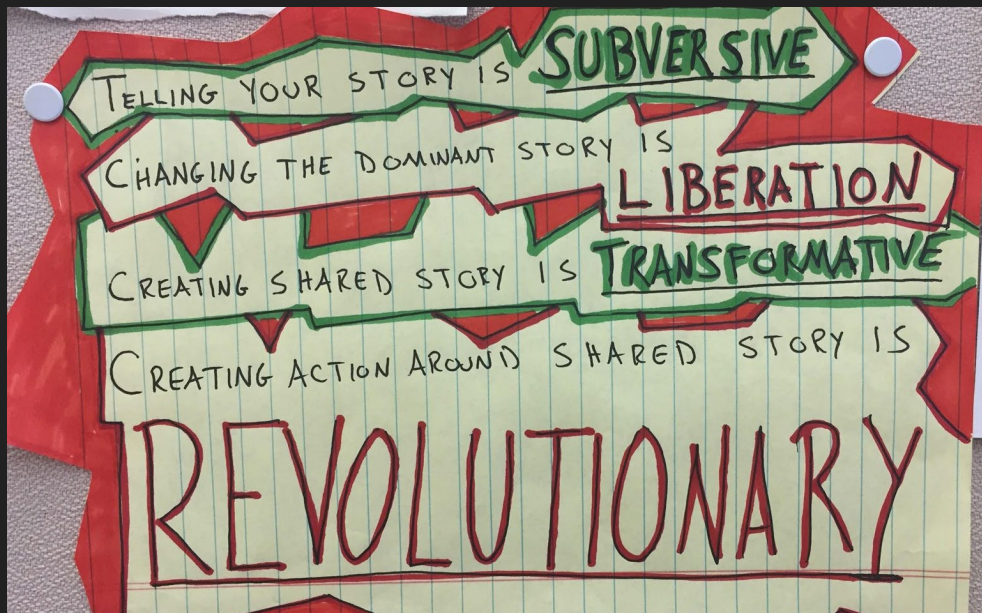 TELLING YOUR STORY IS SUBVERSIVE
CHANGING THE DOMINANT STORY IS LIBERATION
CREATING SHARED STORY IS TRANSFORMATIVE
CREATING ACTION AROUND SHARED STORY IS
REVOLUTIONARY